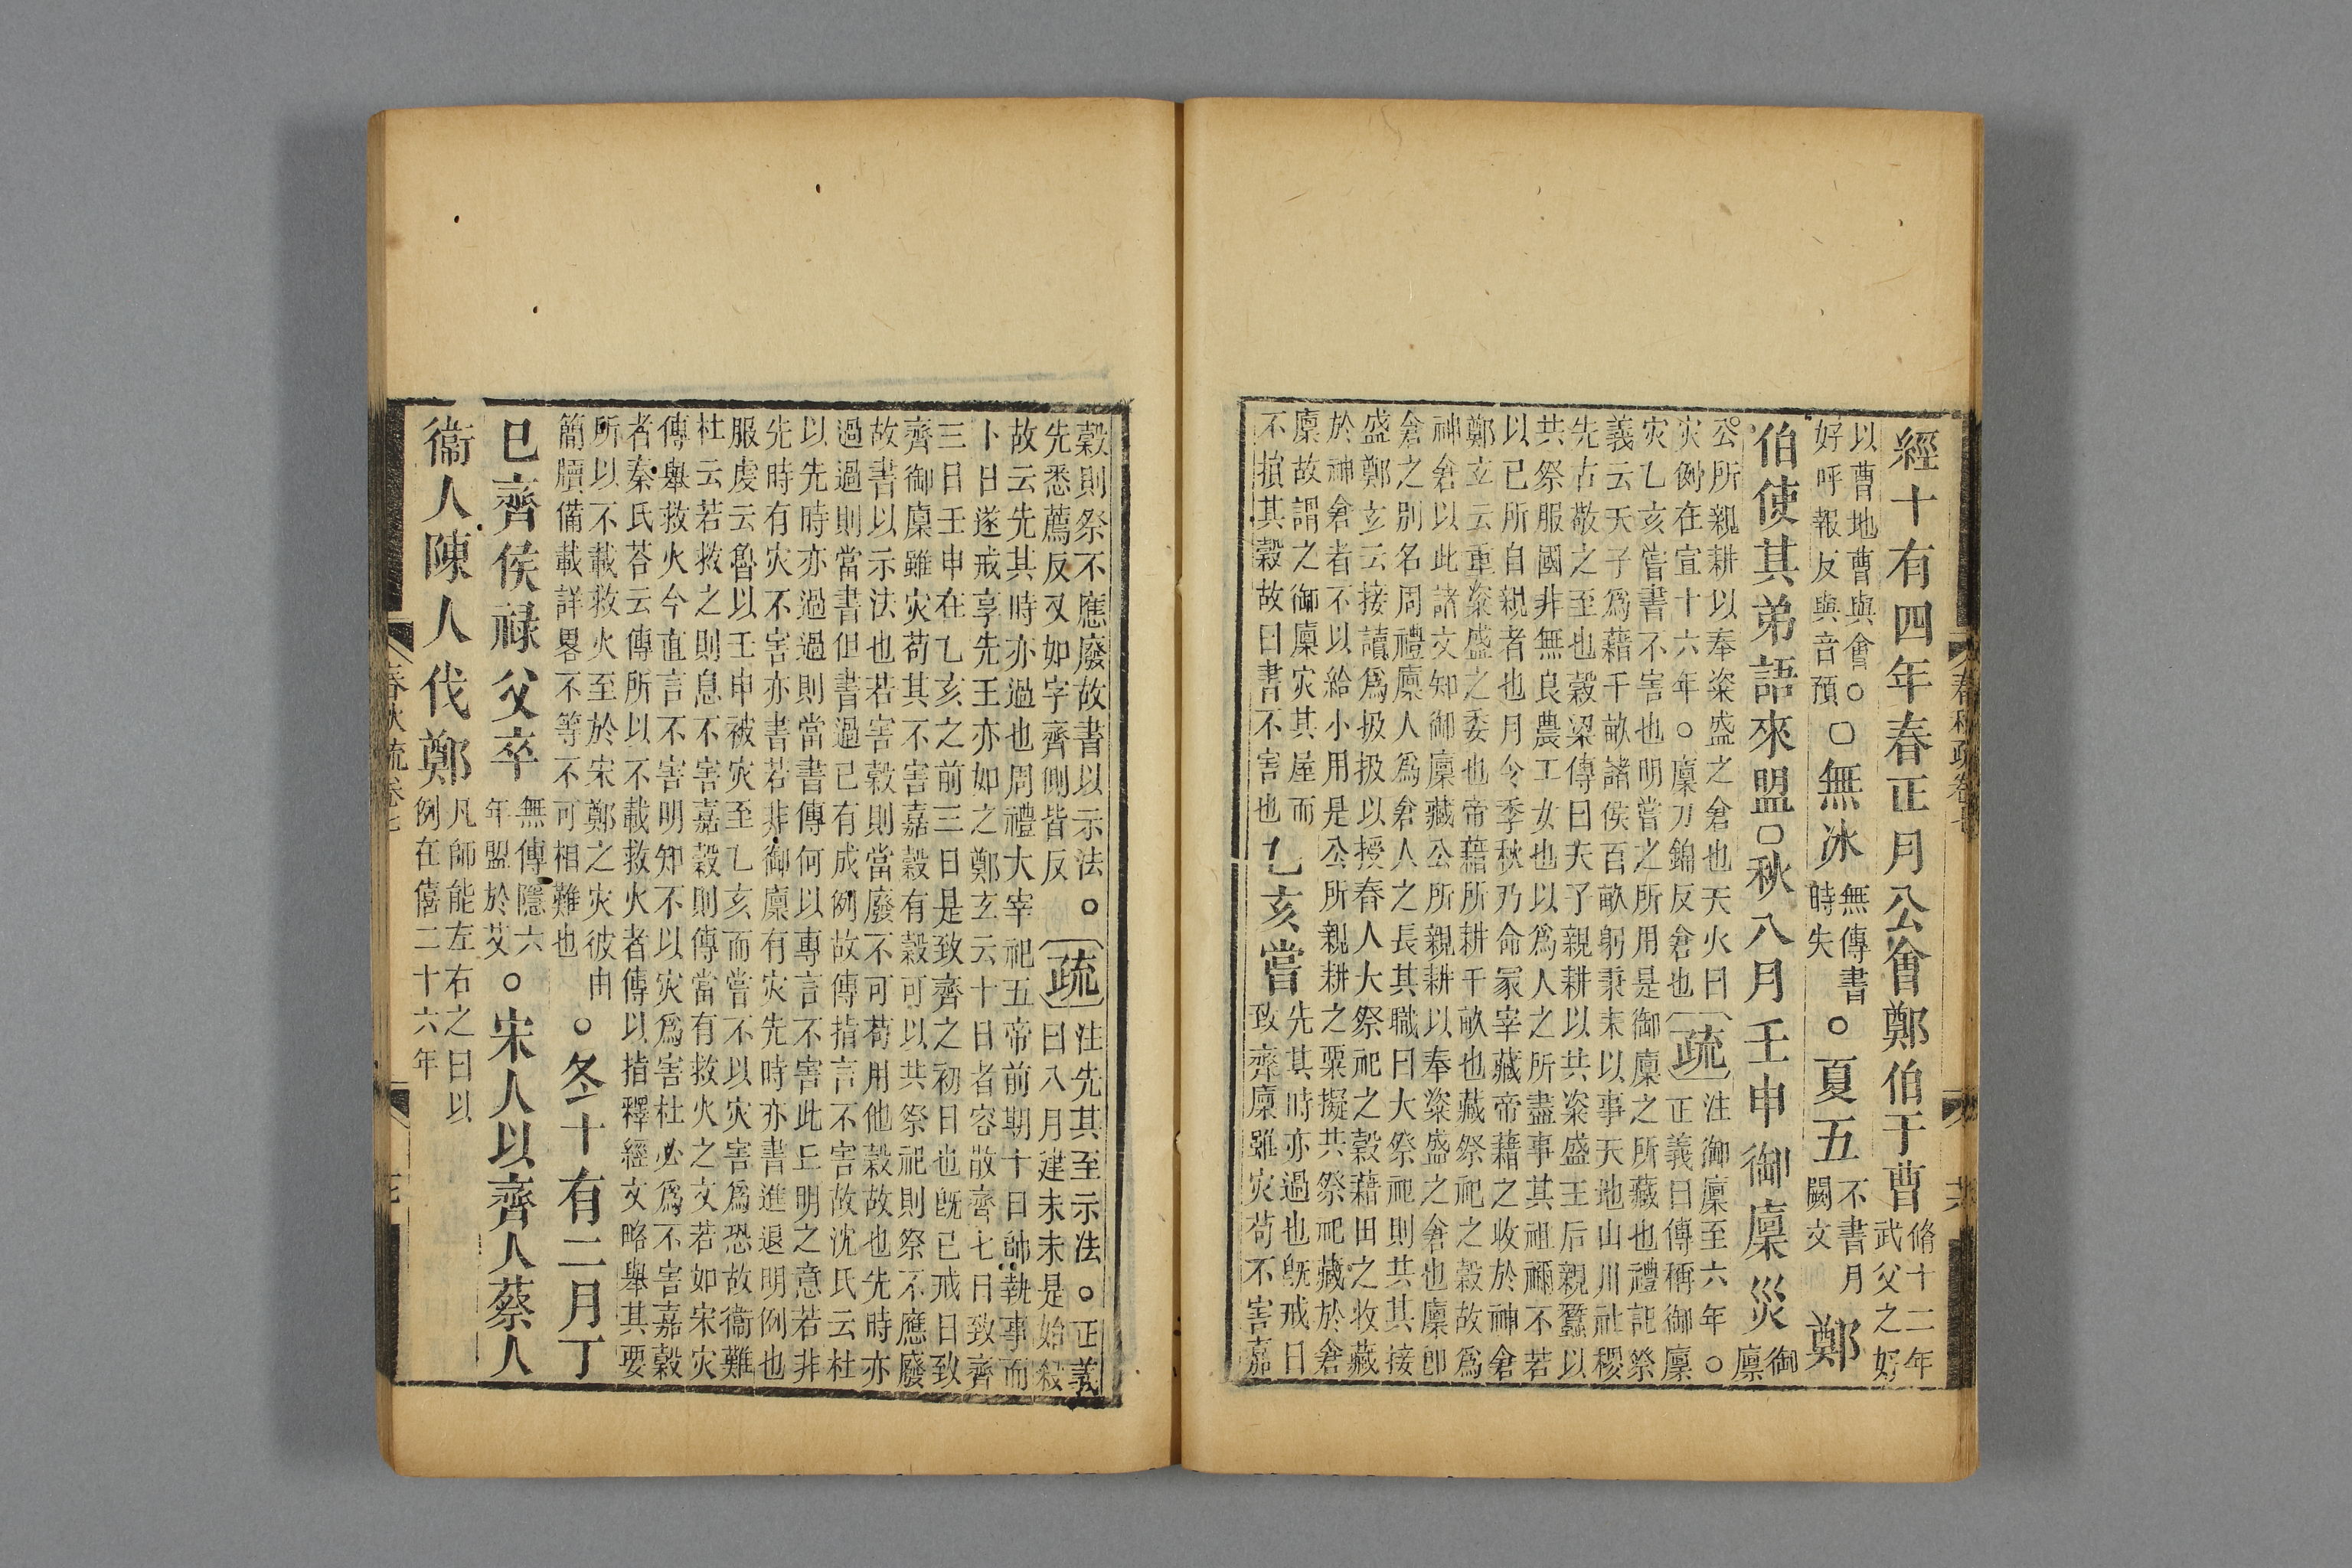 經十有四年春正月公會鄭伯于曹脩十二年武父之好
以曹地曹與會○好呼報反與音預○無冰無傳書時失○夏五不書月闕文鄭
伯使其弟語來盟○秋八月壬申御廩災御廩
公所親耕以奉粢盛之倉也天火曰灾例在宣十六年○廩力錦反倉也疏注御廩至六年○正義曰傳稱御廩
灾乙亥嘗書不害也明嘗之所用是御廩之所藏也禮記祭
義云天子爲藉千畝諸侯百畝躬秉耒以事天地山川社稷
先古敬之至也穀梁傳曰天子親耕以共粢盛王后親蠶以
共祭服國非無良農工女也以爲人之所盡事其祖禰不若
以已所自親者也月令季秋乃命冢宰藏帝藉之收於神倉
鄭玄云重粢盛之委也帝藉所耕千畝也藏祭祀之穀故爲
神倉以此諸文知御廩藏公所親耕以奉粢盛之倉也廩卽
倉之別名周禮廩人爲倉人之長其職曰大祭祀則共其接
盛鄭玄云接讀爲扱扱以授舂人大祭祀之穀藉田之收藏
於神倉者不以給小用是公所親耕之粟擬共祭祀藏於倉
廩故謂之御廩灾其屋而不損其穀故曰書不害也乙亥嘗先其時亦過也旣戒日致齊廩雖灾苟不害嘉
春秋疏卷七
穀則祭不應廢故書以示法○先悉薦反又如字齊側皆反疏注先其至示法○正義曰八月建未未是始殺
故云先其時亦過也周禮大宰祀五帝前期十日帥執事而
卜日遂戒享先王亦如之鄭玄云十日者容散齊七日致齊
三日壬申在乙亥之前三日是致齊之初日也旣已戒日致
齊御廩雖灾苟其不害嘉穀有穀可以共祭祀則祭不應廢
故書以示法也若害穀則當廢不可苟用他穀故也先時亦
過過則當書但書過已有成例故傳指言不害故沈氏云杜
以先時亦過過則當書傳何以專言不害此丘明之意若非
先時有灾不害亦書若非御廩有灾先時亦書進退明例也
服虔云魯以壬申被灾至乙亥而嘗不以灾害爲恐故衞難
杜云若救之則息不害嘉穀則傳當有救火之文若如宋灾
傳舉救火今直言不害明知不以灾爲害杜必爲不害嘉穀
者秦氏荅云傳所以不載救火者傳以指釋經文略舉其要
所以不載救火至於宋鄭之灾彼由簡牘備載詳畧不等不可相難也○冬十有二月丁
巳齊侯祿父卒無傳隱六年盟於艾○宋人以齊人蔡人
衞人陳人伐鄭凡師能左右之曰以例在僖二十六年
春秋疏卷七